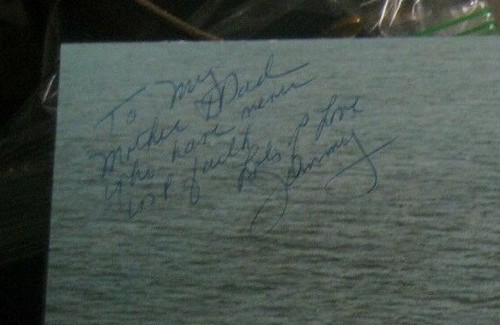 To My
Mother & Dad
who have never
lost faith
Lots of Love
Jimmy